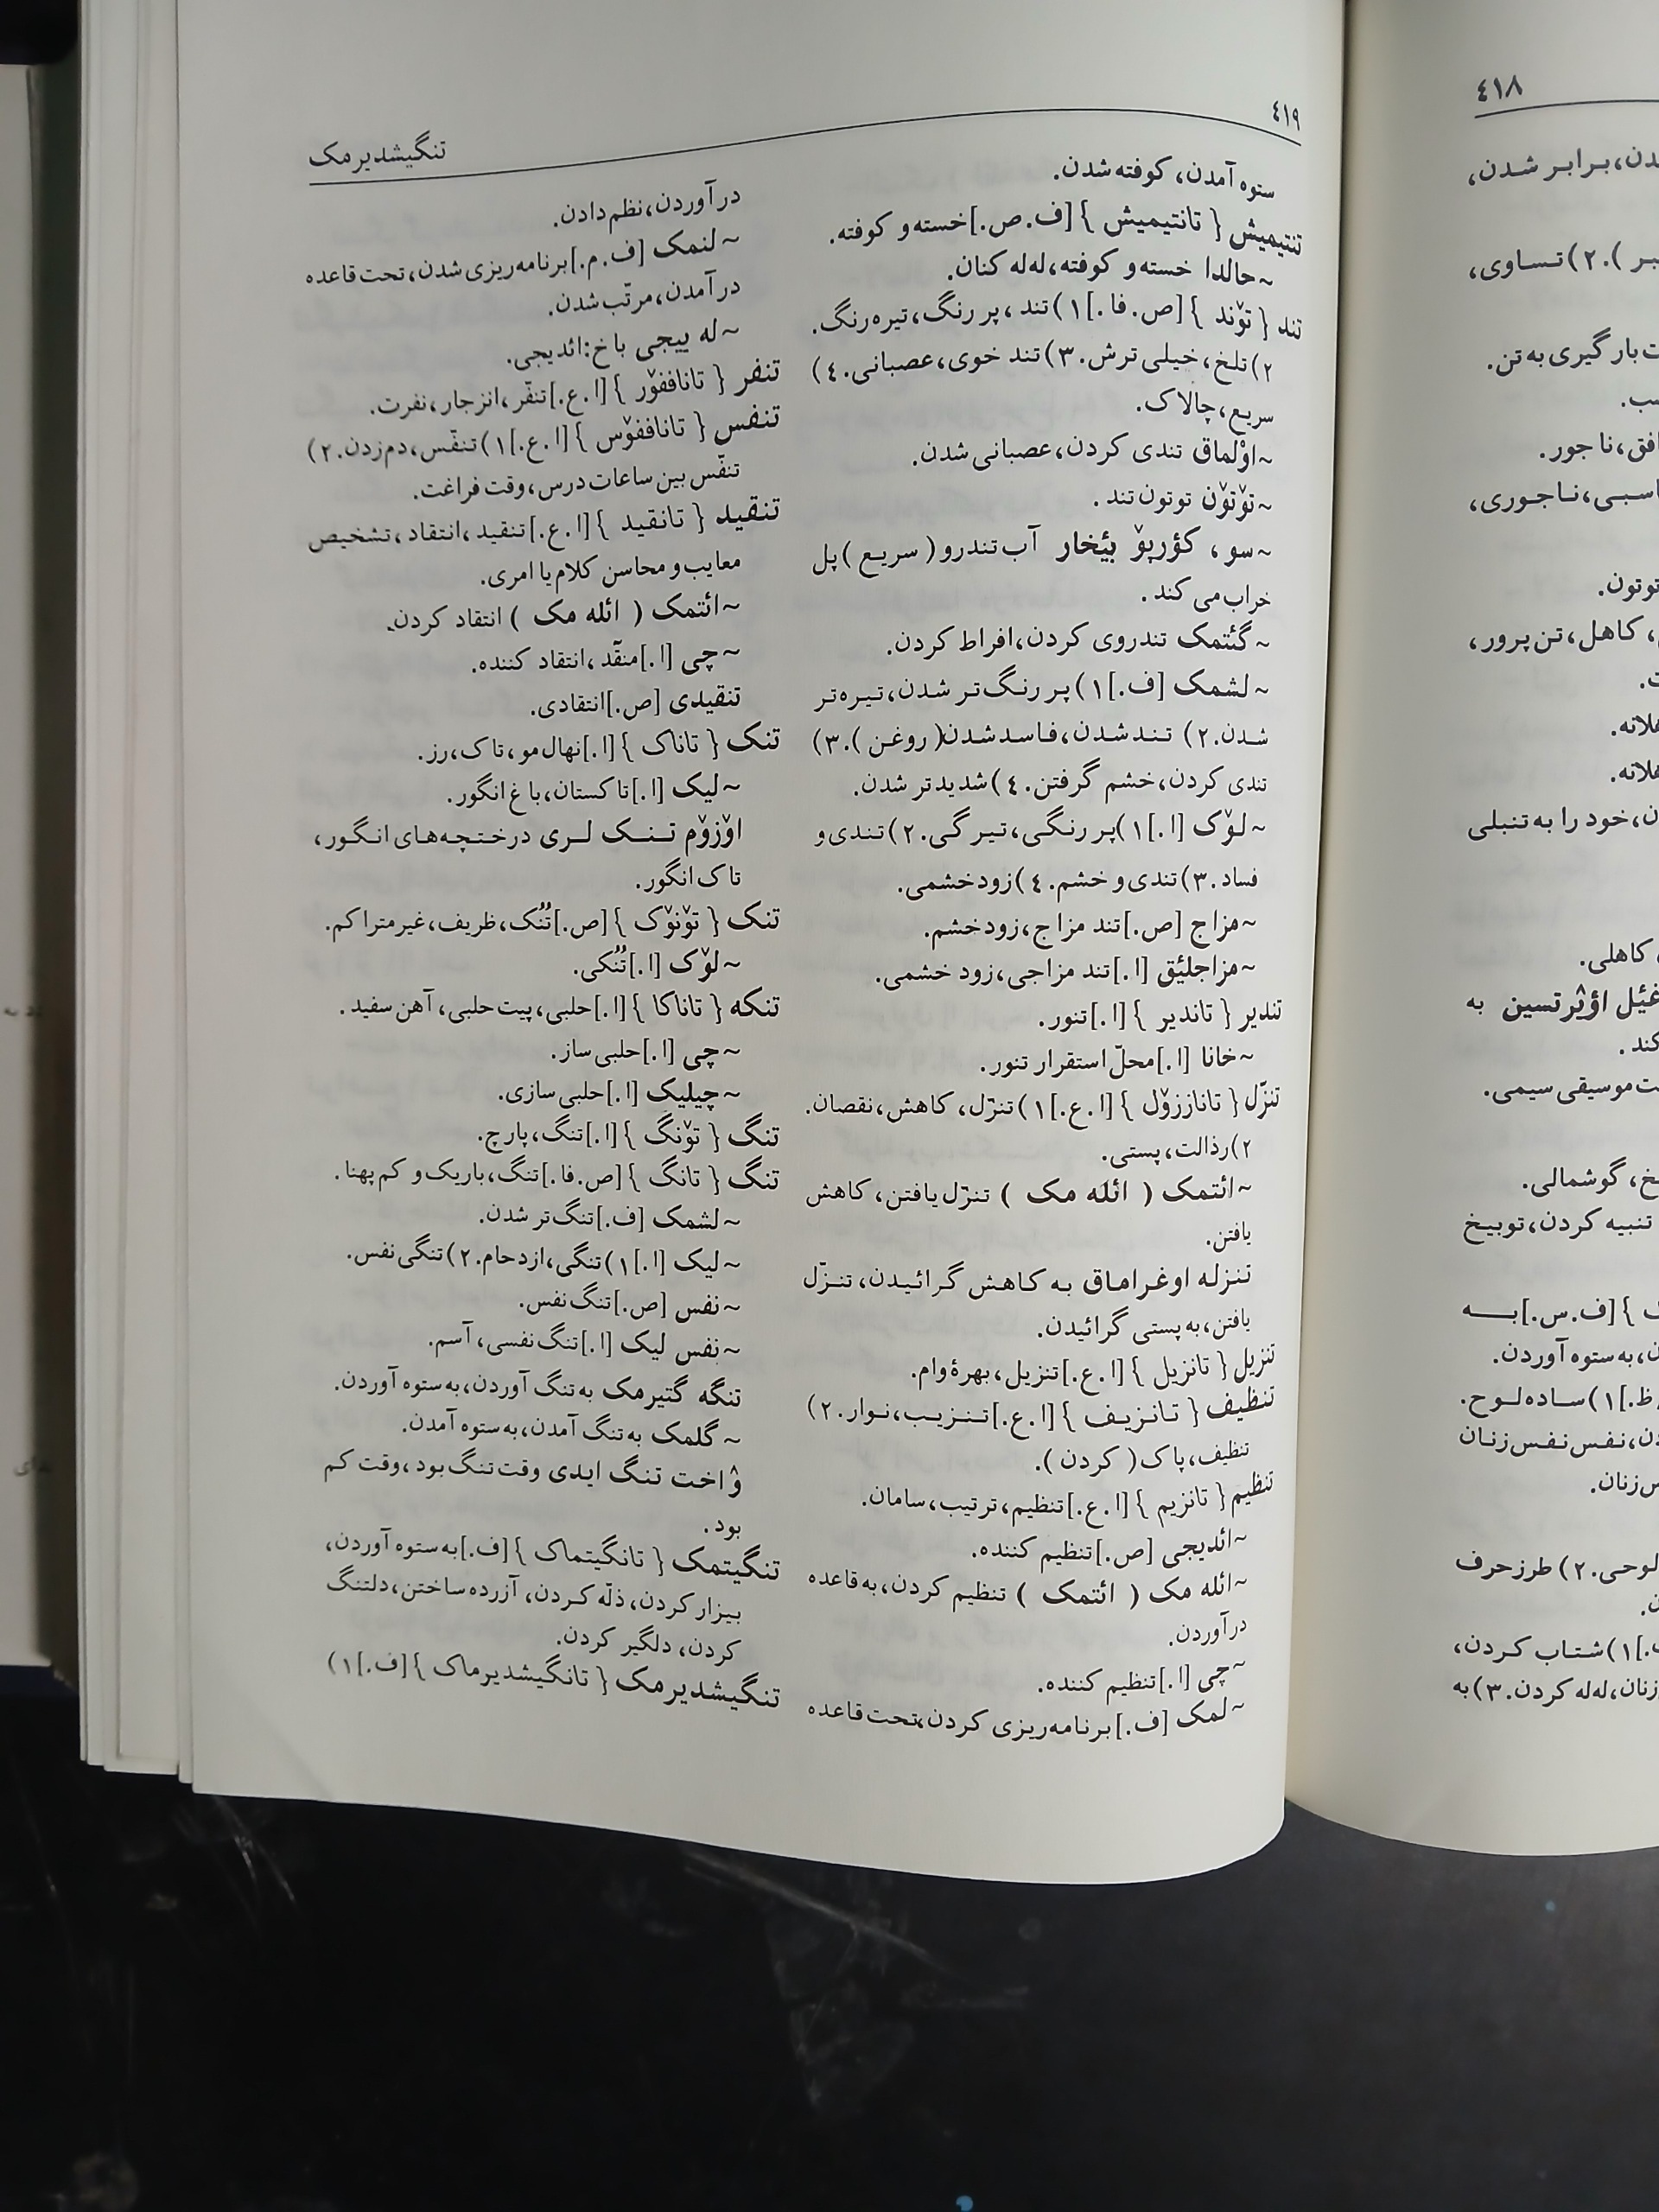 ٤١٩
تنگیشدیرمک
ستوه آمدن، کوفته شدن.
تنتیمیش { تانتیمیش } [ف.ص.] خسته و کوفته.
~حالدا خسته و کوفته، له‌له کنان.
تند { تۆند } [ص.فا.] ۱) تند، پر رنگ، تیره رنگ.
۲) تلخ، خیلی ترش. ۳) تند خوی، عصبانی. ٤)
سریع، چالاک.
~اوْلماق تندی کردن، عصبانی شدن.
~تۆتۆن توتون تند.
~سو، کؤرپۆ یئخار آب تندرو (سریع) پل
خراب می کند.
~گئتمک تندروی کردن، افراط کردن.
~لشمک [ف.] ۱) پر رنگ تر شدن، تیره تر
شدن. ۲) تند شدن، فاسد شدن (روغن). ۳)
تندی کردن، خشم گرفتن. ٤) شدیدتر شدن.
~لۆک [ا.] ۱) پر رنگی، تیرگی. ۲) تندی و
فساد. ۳) تندی و خشم. ٤) زود خشمی.
~مزاج [ص.] تند مزاج، زود خشم.
~مزاجلیٛق [ا.] تند مزاجی، زود خشمی.
تندیر { تاندیر } [ا.] تنور.
~خانا [ا.] محلّ استقرار تنور.
تنزّل { تاناززۆل } [ا.ع.] ۱) تنزّل، کاهش، نقصان.
۲) رذالت، پستی.
~ائتمک ( ائله مک ) تنزّل یافتن، کاهش
یافتن.
تنزله اوغراماق به کاهش گرائیدن، تنزّل
یافتن، به پستی گرائیدن.
تنزیل { تانزیل } [ا.ع.] تنزیل، بهرهٔ وام.
تنظیف { تانزیف } [ا.ع.] تنزیب، نوار. ۲)
تنظیف، پاک ( کردن ).
تنظیم { تانزیم } [ا.ع.] تنظیم، ترتیب، سامان.
~ائدیجی [ص.] تنظیم کننده.
~ائله مک ( ائتمک ) تنظیم کردن، به قاعده
درآوردن.
~چی [ا.] تنظیم کننده.
~لمک [ف.] برنامه ریزی کردن، تحت قاعده
درآوردن، نظم دادن.
~لنمک [ف.م.] برنامه ریزی شدن، تحت قاعده
درآمدن، مرتّب شدن.
~له ییجی باخ: ائدیجی.
تنفر { تانا‌ففۆر } [ا.ع.] تنفّر، انزجار، نفرت.
تنفس { تانا‌ففۆس } [ا.ع.] ۱) تنفّس، دم زدن. ۲)
تنفّس بین ساعات درس، وقت فراغت.
تنقید { تانقید } [ا.ع.] تنقید، انتقاد، تشخیص
معایب و محاسن کلام یا امری.
~ائتمک ( ائله مک ) انتقاد کردن.
~چی [ا.] منقّد، انتقاد کننده.
تنقیدی [ص.] انتقادی.
تنک { تاناک } [ا.] نهال مو، تاک، رز.
~لیک [ا.] تاکستان، باغ انگور.
اۆزۆم تنک لری درختچه‌های انگور،
تاک انگور.
تنک { تۆنۆک } [ص.] تُنُک، ظریف، غیر متراکم.
~لۆک [ا.] تُنُکی.
تنکه { تاناکا } [ا.] حلبی، پیت حلبی، آهن سفید.
~چی [ا.] حلبی ساز.
~چیلیک [ا.] حلبی سازی.
تنگ { تۆنگ } [ا.] تنگ، پارچ.
تنگ { تانگ } [ص.فا.] تنگ، باریک و کم پهنا.
~لشمک [ف.] تنگ تر شدن.
~لیک [ا.] ۱) تنگی، ازدحام. ۲) تنگی نفس.
~نفس [ص.] تنگ نفس.
~نفس لیک [ا.] تنگ نفسی، آسم.
تنگه گتیرمک به تنگ آوردن، به ستوه آوردن.
~ گلمک به تنگ آمدن، به ستوه آمدن.
ۋاخت تنگ ایدی وقت تنگ بود، وقت کم
بود.
تنگیتمک { تانگیتماک } [ف.] به ستوه آوردن،
بیزار کردن، ذلّه کردن، آزرده ساختن، دلتنگ
کردن، دلگیر کردن.
تنگیشدیرمک { تانگیشدیرماک } [ف.] ۱)
٤١٨
برابر شدن،
۲) تساوی،
بارگیری به تن.
ناجور.
ناجوری،
توتون.
کاهل، تن پرور،
خود را به تنبلی
کاهلی.
اؤیرتسین به
کند.
موسیقی سیمی.
گوشمالی.
تنبیه کردن، توبیخ
} [ف.س.] به
به ستوه آوردن.
۱) ساده لوح.
نفس نفس زنان
زنان.
لوحی. ۲) طرز حرف
۱) شتاب کردن،
زنان، له‌له کردن. ۳) به